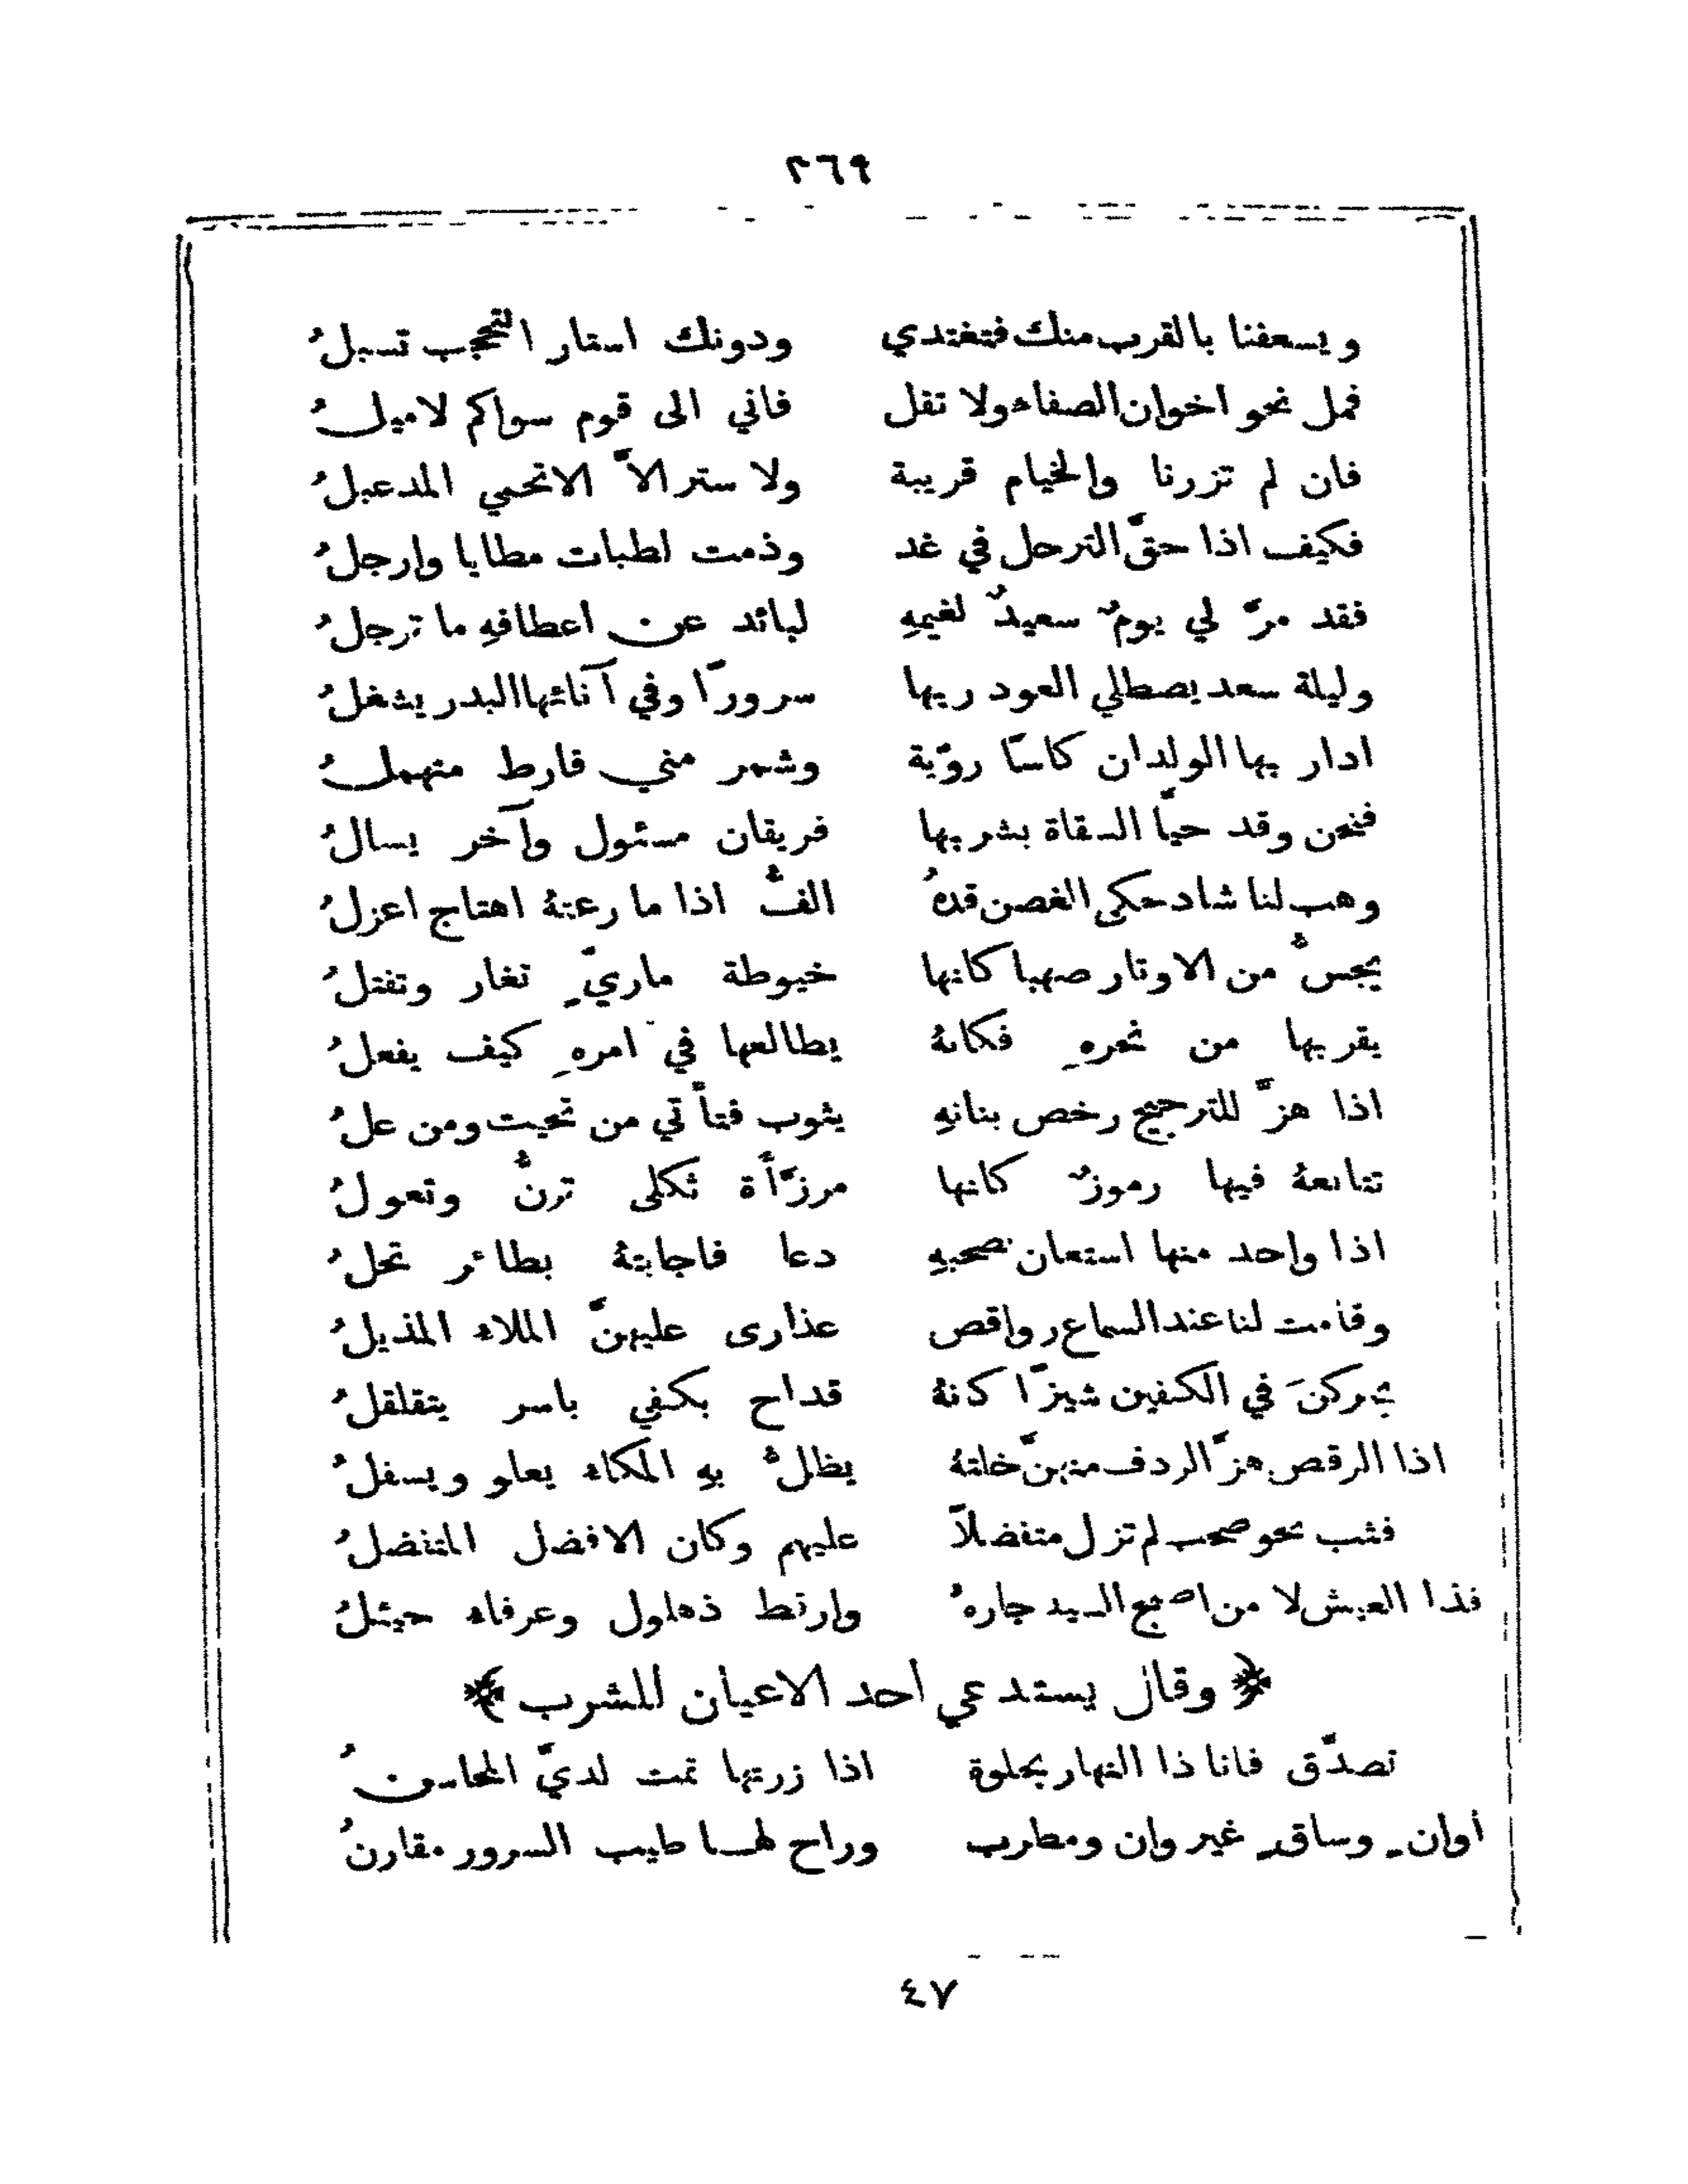 ٣٦٩
ويسعفنا بالقرب منك فتغتدي ودونك استار التحجب تسبلُ
فمل نحو اخوان الصفاء ولا تقل فاني الى قوم سواكم لاميلُ
فان لم تزرنا والخيام قريبة ولا ستر الاَّ الاتحمي المدعبلُ
فكيف اذا حقَّ الترحل في غد وذمت لطيات مطايا وارجلُ
فقد مرَّ لي يومٌ سعيدٌ لغيمهِ لبائد عن اعطافهِ ما ترجلُ
وليلة سعد يصطلي العود ربها سرورًا وفي آنائها البدر يشغلُ
ادار بها الولدان كاسًا رويّة وشمر مني فارط متمهلُ
فنحن وقد حيَّا السقاة بشربها فريقان مسئول وآخر يسالُ
وهب لنا شاد حكى الغصن قدهُ الفُّ اذا ما رعتهُ اهتاج اعزلُ
يجسُّ من الاوتار صهبا كانها خيوطة ماريٍّ تغار وتفتلُ
يقربها من نحرهِ فكانهُ يطالعها في امرهِ كيف يفعلُ
اذا هزَّ للترجيح رخص بنانهِ يثوب فتأتي من تحيت ومن علُ
تتابعهُ فيها رموزٌ كانها مرزَّأة ثكلى ترنُّ وتعولُ
اذا واحد منها استعان بصحبهِ دعا فاجابتهُ بطائر تحلُ
وقامت لنا عند السماع رواقص عذارى عليهنَّ الملاء المذيلُ
يحركنَ في الكفين شيزًا كانهُ قداح بكفي ياسر يتقلقلُ
اذا الرقص هزَّ الردف منهنَّ خلتهُ يظلُّ بهِ المكاء يعلو ويسفلُ
فثب نحو صحب لم تزل متفضلاً عليهم وكان الافضل المتفضلُ
فذا العيش لا من اصبح السيد جارهُ وارقط ذهلول وعرفاء جيئلُ
﴿ وقال يستدعي احد الاعيان للشرب ﴾
تصدَّق فانا ذا النهار بخلوة اذا زرتها تمت لديَّ المحاسنُ
أوانٍ وساقٍ غير وان ومطرب وراح لهــا طيب السرور مقارنُ
٤٧